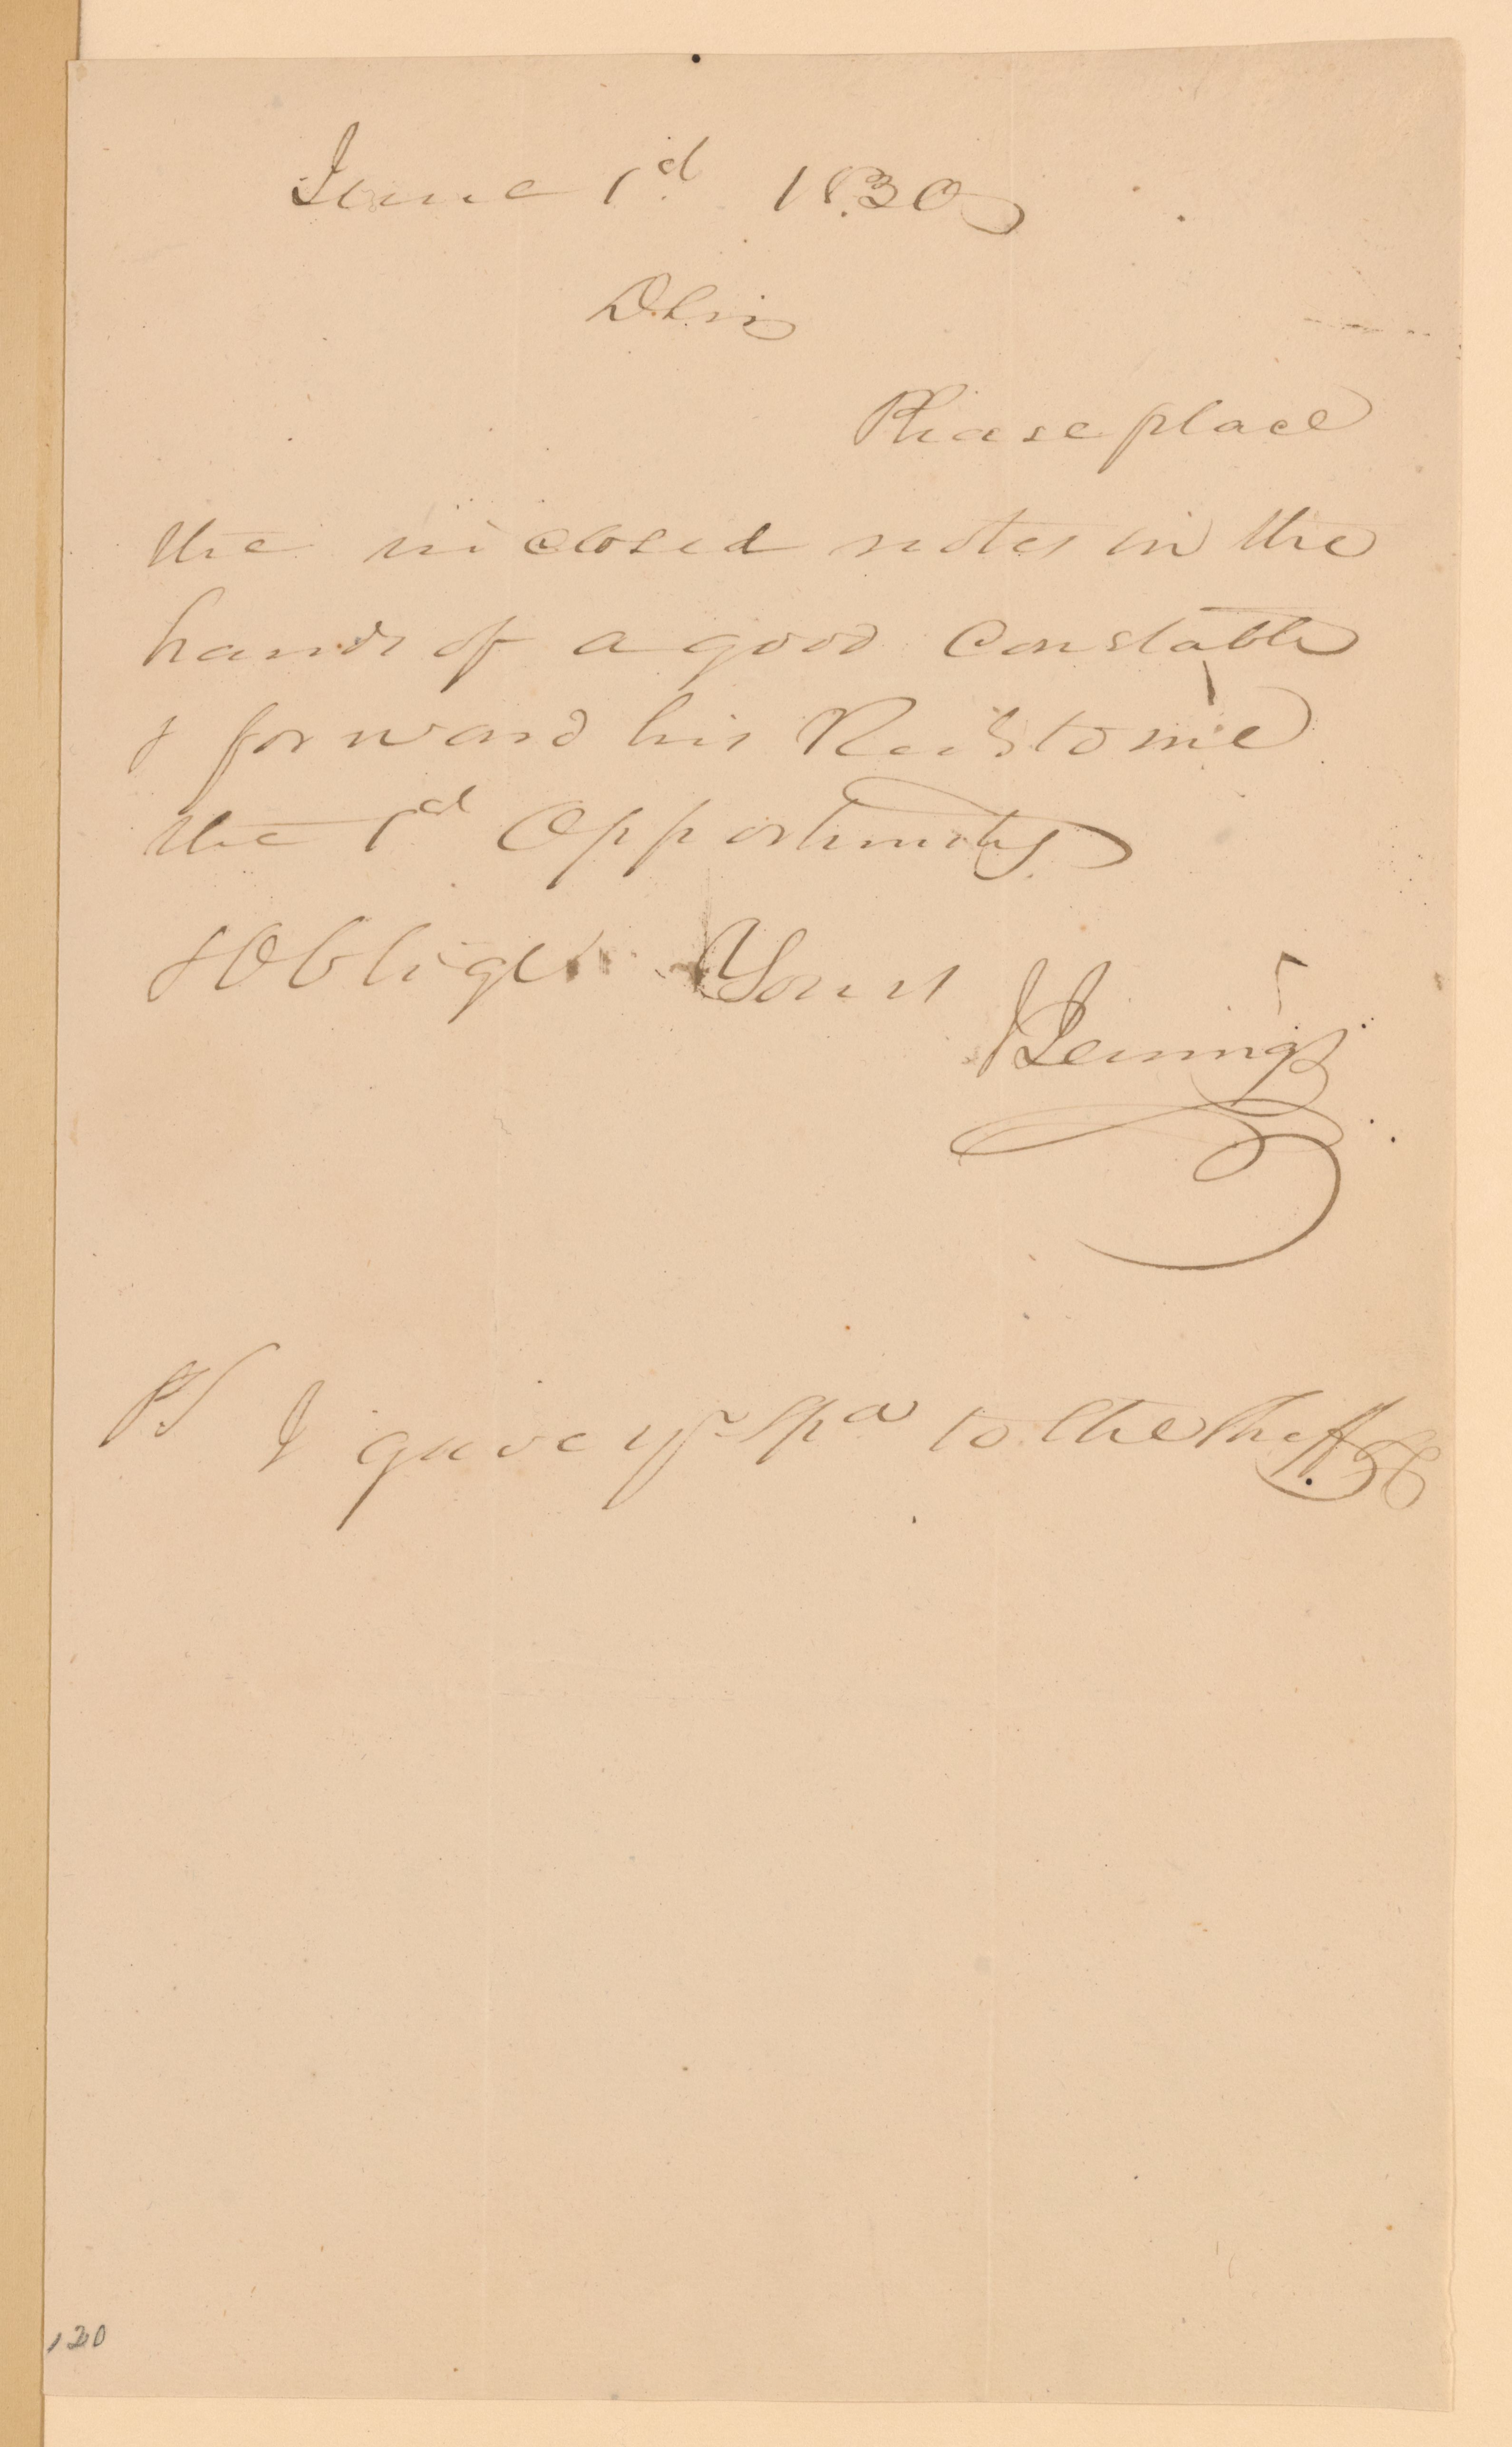 June 1d 1830
D Sir
Please place
the inclosed notes in the
hands of a good Constable
& forward his Recd to me
the 1d Opportunity
& Oblige Yours
J Jennings
PS I gave yr Spa to the Shff
130